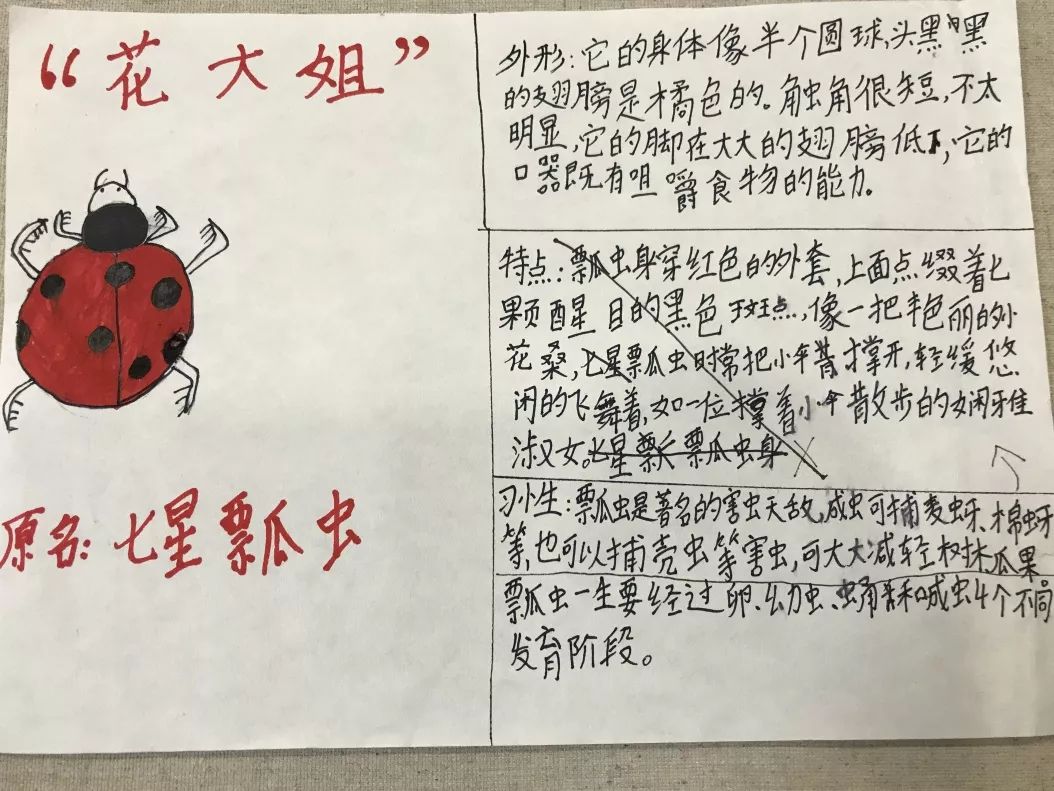 “花大姐”
原名：七星瓢虫
外形：它的身体像半个圆球，头黑黑
的翅膀是橘色的。触角很短，不太
明显，它的脚在大大的翅膀低下，它的
口器既有咀嚼食物的能力。
特点：瓢虫身穿红色的外套，上面点缀着七
颗醒目的黑色斑点，像一把艳丽的外
花桑，七星瓢虫时常把小伞撑开，轻缓悠
闲的飞舞着，如一位撑着小伞散步的娴雅
淑女。七星瓢瓢虫身
习性：瓢虫是著名的害虫天敌，成虫可捕麦蚜、棉蚜
等，也可以捕壳虫等害虫，可大大减轻树林瓜果。
瓢虫一生要经过卵、幼虫、蛹和成虫4个不同
发育阶段。